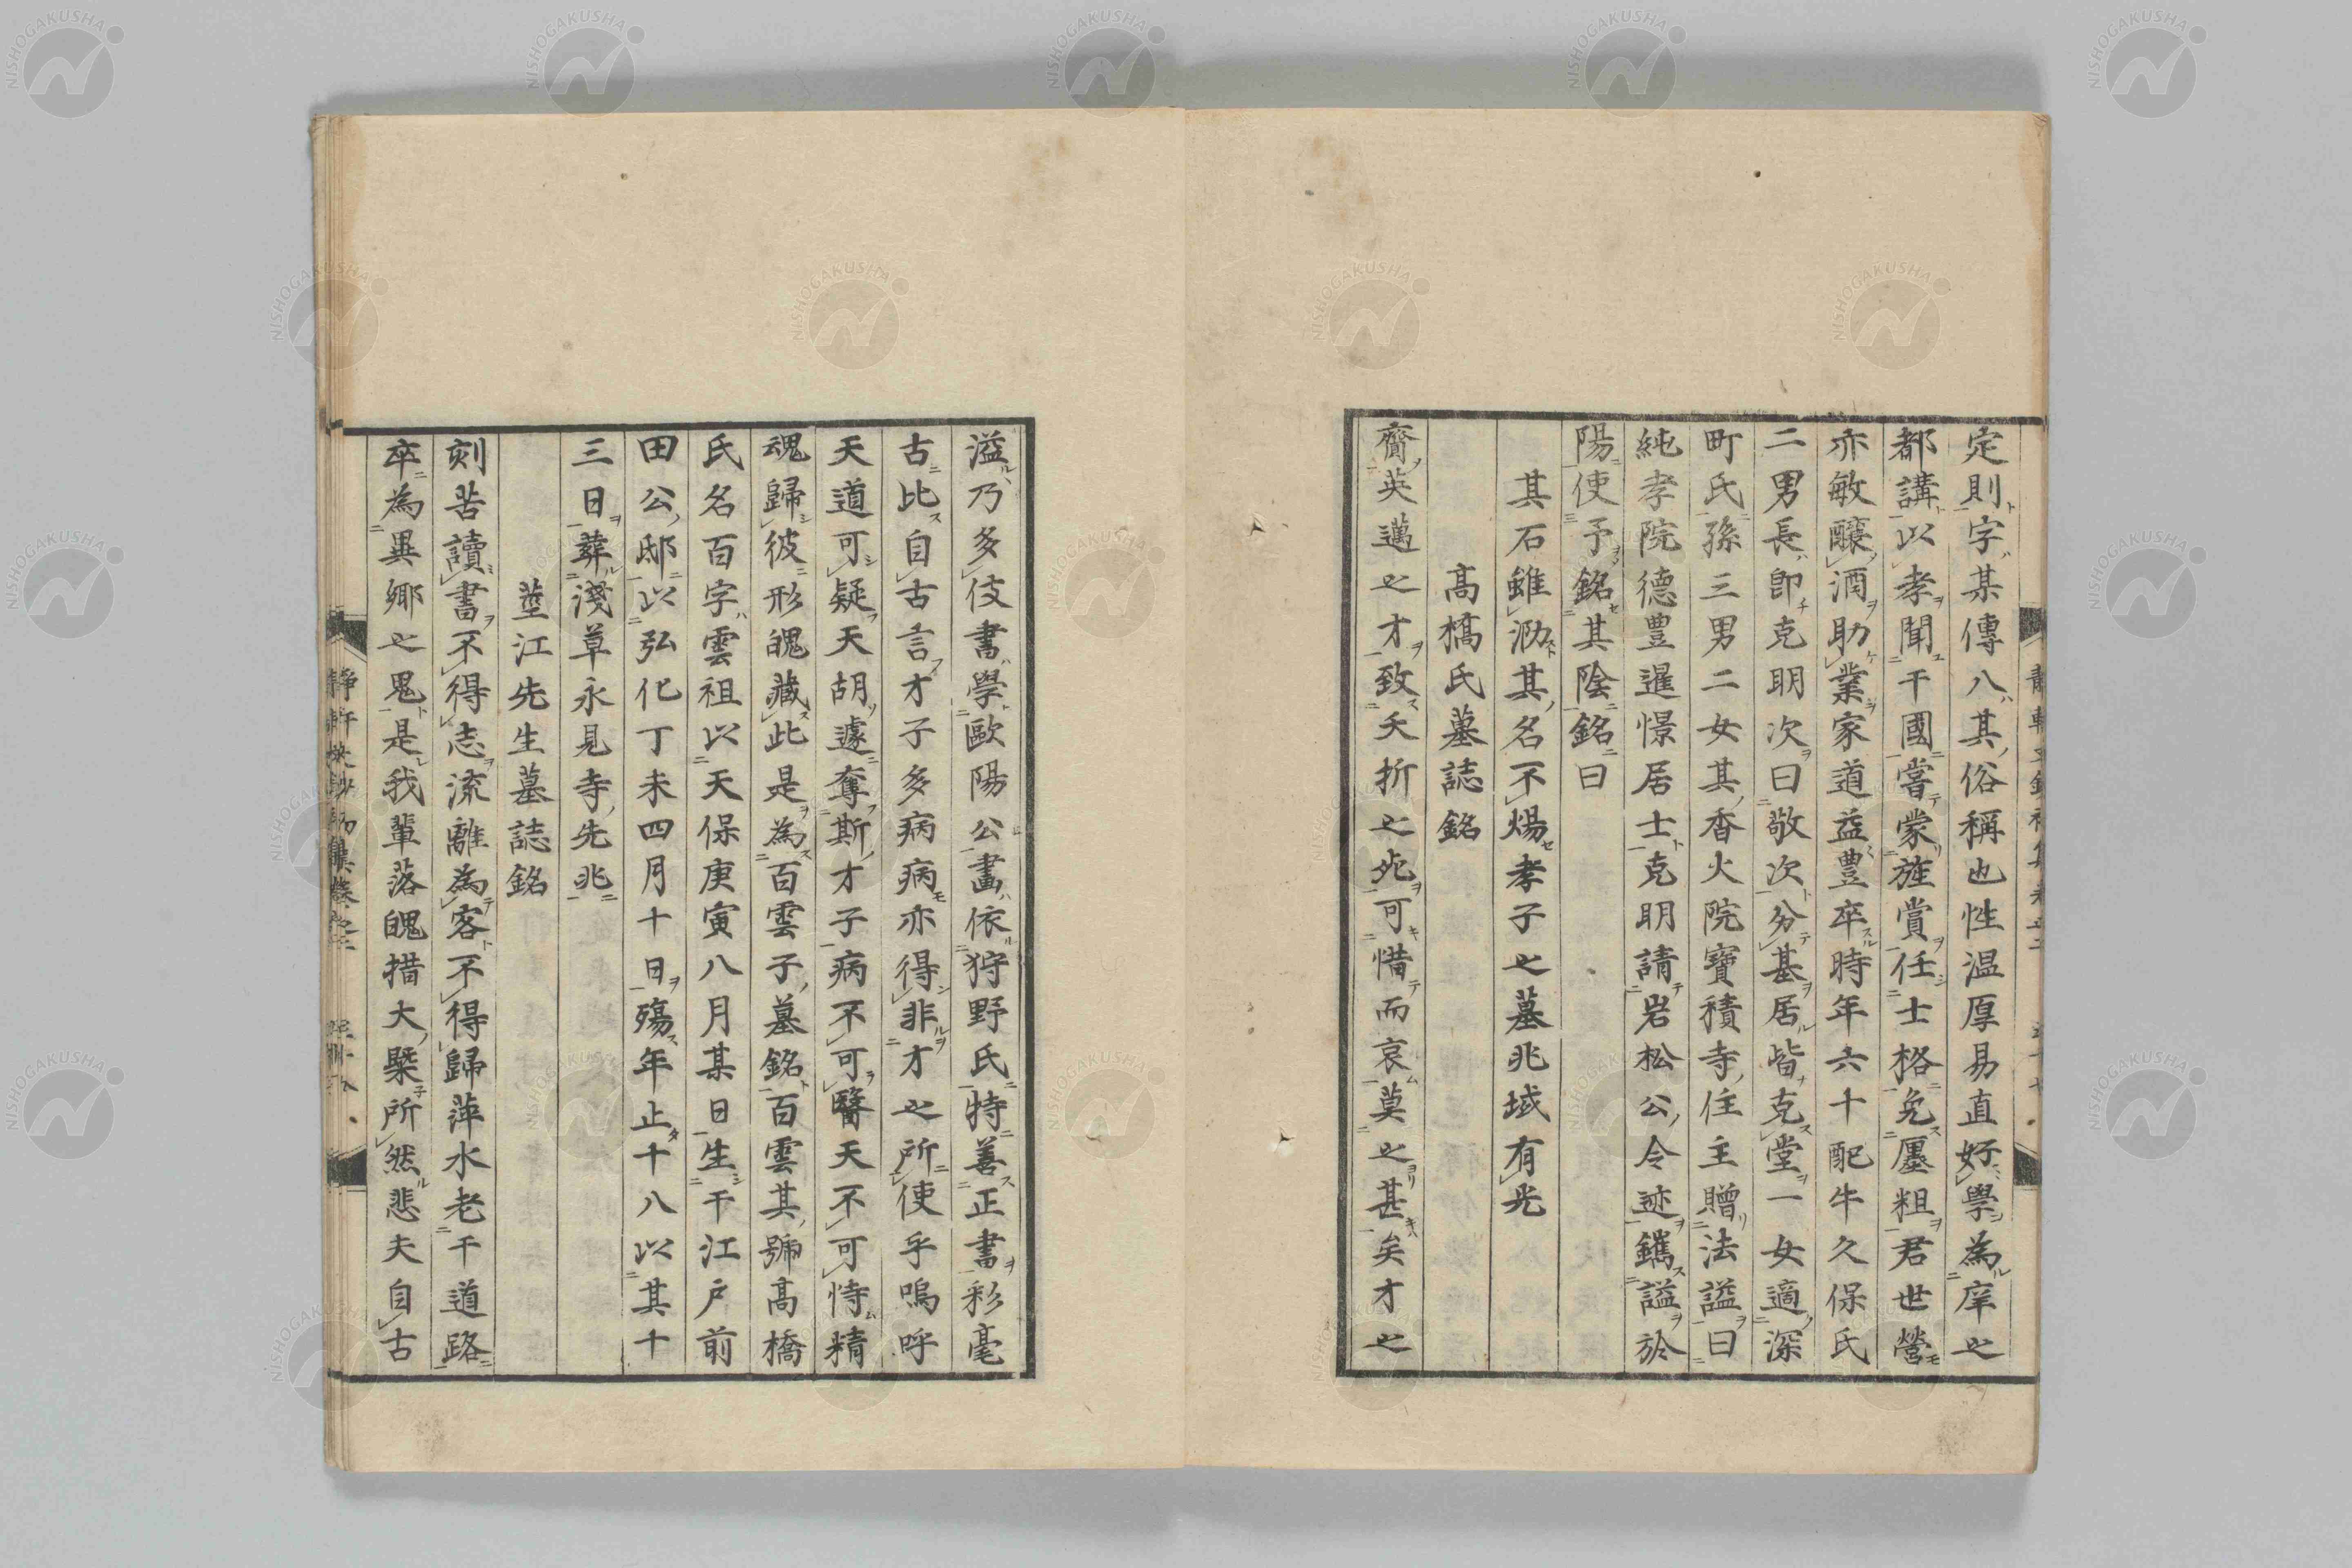 定則字某傳八其俗稱也性温厚易直好學為庠之
都講以孝聞于國嘗蒙旌賞任士格免廛粗君世營
亦敏釀酒助業家道益豊卒時年六十配牛久保氏
二男長即克明次曰敬次分基居皆克堂一女適深
町氏孫三男二女其香火院寶積寺住主贈法謚曰
純孝院德豊暹憬居士克明請岩松公令迹鑴謚於
陽使予銘其陰銘曰
其石雖泐其名不煬孝子之墓兆域有光
高橋氏墓誌銘
齎英邁之才致夭折之死可惜而哀莫之甚矣才之
溢乃多伎書學歐陽公畫依狩野氏特善正書彩毫
古比自古言才子多病病亦得非才之所使乎嗚呼
天道可疑天胡遽奪斯才子病不可醫天不可恃精
魂歸彼形魄藏此是為百雲子墓銘百雲其號高橋
氏名百字雲祖以天保庚寅八月某日生于江戸前
田公邸以弘化丁未四月十日殤年止十八以其十
三日葬淺草永見寺先兆
蕋江先生墓誌銘
刻苦讀書不得志流離為客不得歸萍水老于道路
卒為異鄉之鬼是我輩落魄措大槩所然悲夫自古